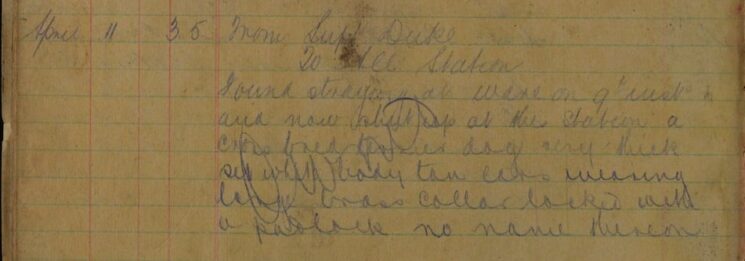 April 11 35 From Supt Duke
To All Station
Found straying at Ware on 9th inst
and now kept up at this Station a
cross bred terrier dog very thick
set white body tan ears wearing
large brass collar locked with
a padlock no name thereon